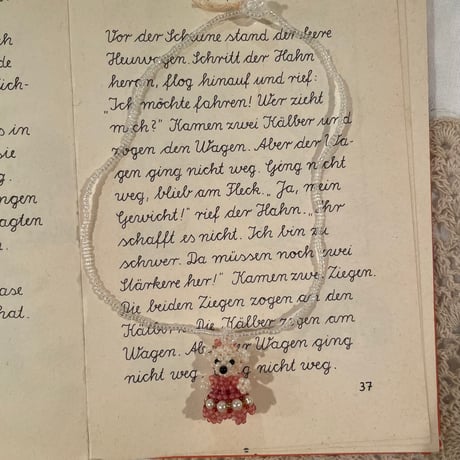 ch
de
ich-
s in
sie
g.
ngen
agten
ase
hat.
Vor der Scheune stand der leere
Heuwagen. Schritt der Hahn
heran, flog hinauf und rief:
„Ich möchte fahren! Wer zieht
mich?" Kamen zwei Kälber und
zogen den Wagen. Aber der Wa-
gen ging nicht weg. Ging nicht
weg, blieb am Fleck. „Ja, mein
Gewicht!" rief der Hahn. „Ihr
schafft es nicht. Ich bin zu
schwer. Da müssen noch zwei
Stärkere her!" Kamen zwei Ziegen.
Die beiden Ziegen zogen an den
Kälbern. Die Kälber zogen am
Wagen. Aber der Wagen ging
nicht weg nicht weg.
37